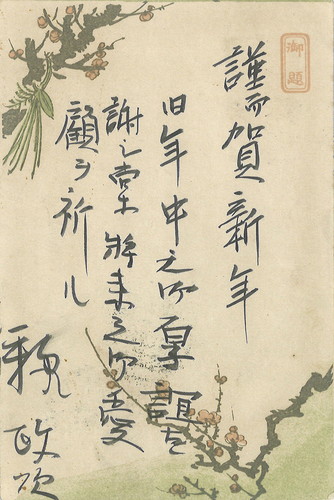 御題
謹而賀新年
旧年中之御厚誼を
謝し尚ホ将来之御愛
顧ヲ祈ル